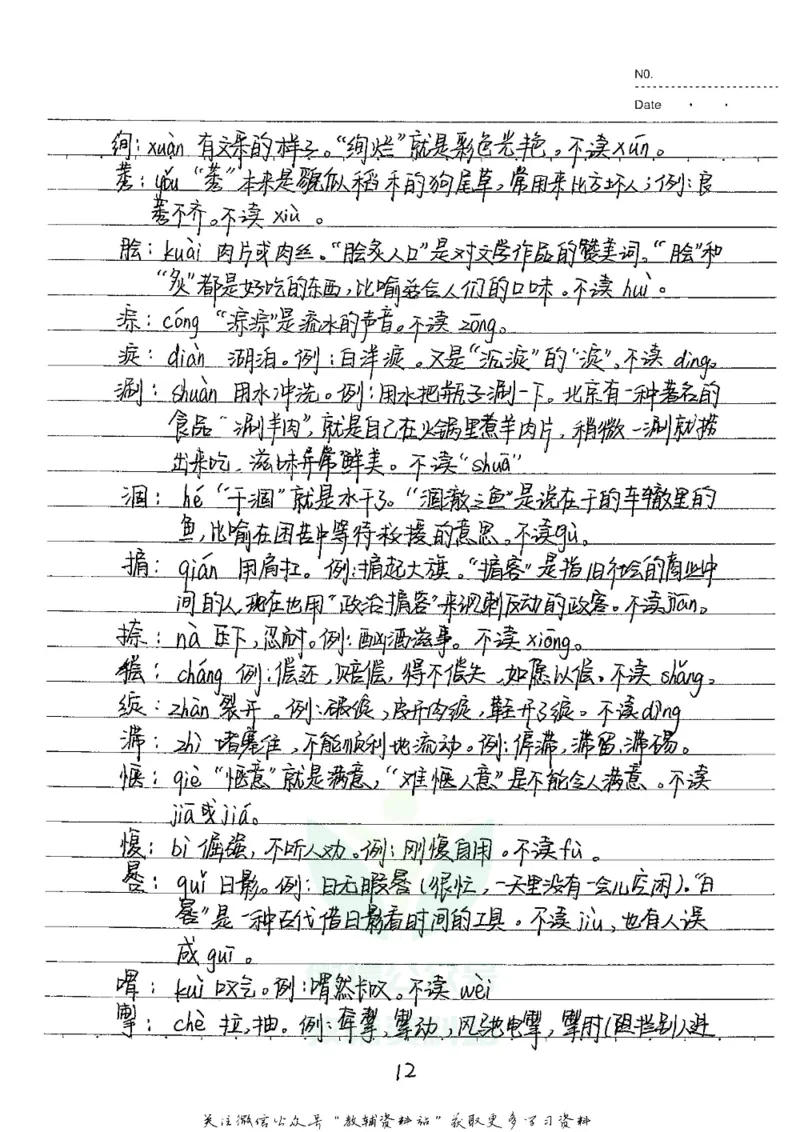 NO.
Date
绚：xuàn 有文采的样子。“绚烂”就是彩色光艳。不读xún。
莠：yǒu “莠”本来是貌似稻禾的狗尾草，常用来比方坏人；例：良
莠不齐。不读 xiù 。
脍：kuài 肉片或肉丝。“脍炙人口”是对文学作品的赞美词。“脍”和
“炙”都是好吃的东西，比喻适合人们的口味。不读 huì 。
淙：cóng “淙淙”是流水的声音。不读 zōng。
淀：diàn 湖泊。例：白洋淀。又是“沉淀”的“淀”，不读 dìng。
涮：shuàn 用水冲洗。例：用水把瓶子涮一下。北京有一种著名的
食品“涮羊肉”，就是自己在火锅里煮羊肉片，稍微一涮就捞
出来吃，滋味异常鲜美。不读“shuā”
涸：hé “干涸”就是水干了。“涸辙之鱼”是说在干的车辙里的
鱼，比喻在困苦中等待救援的意思。不读gù。
掮：qián 用肩扛。例：掮起大旗。“掮客”是指旧社会的商业中
间的人，现在也用“政治掮客”来讽刺反动的政客。不读jiān。
捺：nà 压下，忍耐。例：酗酒滋事。不读 xiōng。
偿：cháng 例：偿还，赔偿，得不偿失，如愿以偿。不读 shǎng。
绽：zhàn 裂开。例：破绽，皮开肉绽，鞋开了绽。不读dìng
滞：zhì 堵塞住，不能顺利地流动。例：停滞，滞留，滞碍。
惬：qiè “惬意”就是满意，“难惬人意”是不能令人满意。不读
jiā或jiá。
愎：bì 倔强，不听人劝。例：刚愎自用。不读fù 。
晷：guǐ 日影。例：日无暇晷（很忙，一天里没有一会儿空闲）。“日
晷”是一种古代借日影看时间的工具。不读jiù，也有人误
成guī 。
喟：kuì 叹气。例：喟然长叹。不读 wèi
掣：chè 拉，抽。例：牵掣，掣动，风驰电掣，掣肘（阻拦别）进
12
关注微信公众号“教辅资料站”获取更多学习资料